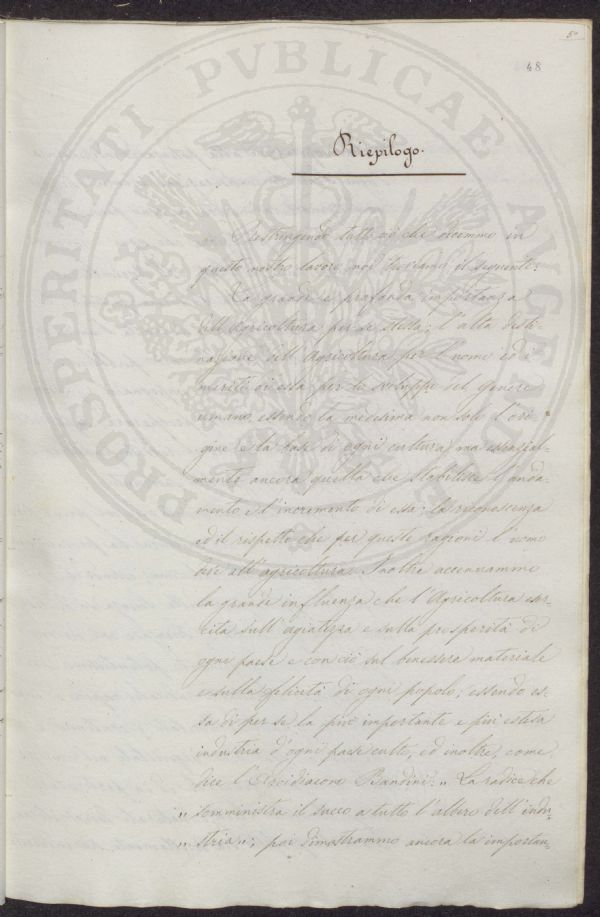 50
48
Riepilogo.
Restringendo tutto ciò che dicemmo in
questo nostro lavoro noi troviamo il seguente:
La grande e profonda importanza
dell'Agricoltura per se stessa; l'alta desti-
nazione dell'Agricoltura per l'uomo ed i
meriti di essa per lo sviluppo del genere
umano, essendo la medesima non solo l'ori-
gine e la base di ogni cultura, ma essenzial-
mente ancora quella che stabilisce l'anda-
mento e l'incremento di essa; la riconoscenza
ed il rispetto che per queste ragioni l'uomo
deve all'agricoltura. Inoltre accennammo
la grande influenza che l'Agricoltura eser-
cita sull'agiatezza e sulla prosperità di
ogni paese e con ciò sul benessere materiale
e sulla felicità di ogni popolo; essendo es-
sa di per se la più importante e più estesa
industria d'ogni paese culto, ed inoltre, come
dice l'Arcidiacono Bandini: „ La radice che
„ somministra il succo a tutto l'albero dell'indu-
„ stria „; poi dimostrammo ancora la importan-
PROSPERITATI PVBLICAE AVGENDAE